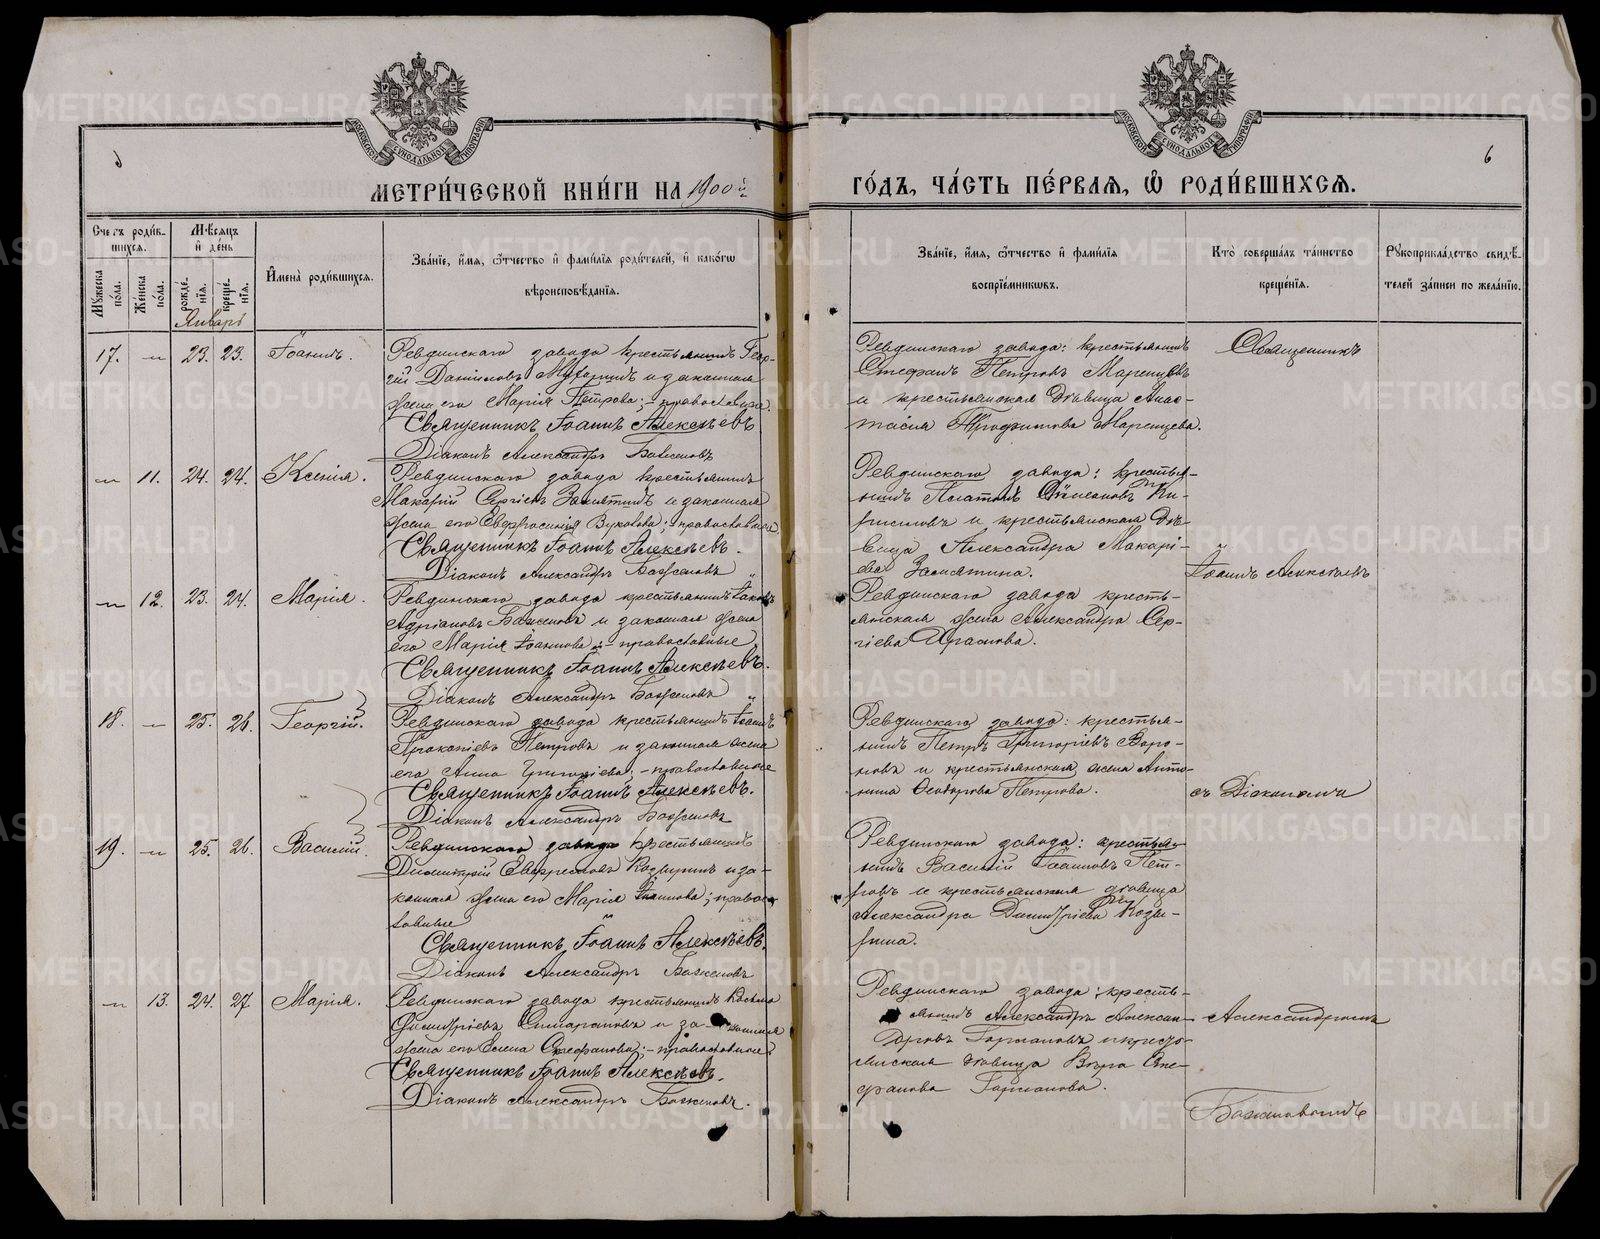 МЕТРИ́ЧЕСКОЙ КНИ́ГИ НА 1900й
ГО́ДЪ, ЧА́СТЬ ПЕ́РВАЯ, Ѽ РОДИ́ВШИХСЯ.
6
Счетъ роди́вшихся.
Му́жеска по́ла.
Же́нска по́ла.
Мѣсяцъ и де́нь
рожде́нія.
креще́нія.
Январь
Имена̀ роди́вшихся.
Зва́ніе, и́мя, ѻ́тчество и фами́лія роди́телей, и како́гѡ
вѣроисповѣ́данія.
Зва́ніе, и́мя, ѻ́тчество и фами́лія
воспріе́мниковъ.
Кто̀ соверша́лъ та́инство
креще́нія.
Рукоприкла́дство свидѣ́-
телей за́писи по жела́нію.
17. — 23. 23. Іоаннъ.
Ревдинскаго завода крестьянинъ Геор-
гій Даниловъ и законная
жена его Марія Петрова; – православные.
Священникъ Іоаннъ Алексѣевъ
Діаконъ Александръ Баженовъ
Ревдинскаго завода: крестьянинъ
Стефанъ Петровъ Маренцевъ
и крестьянская дѣвица Анас-
тасія Трофимова Маренцева.
Священникъ
— 11. 24. 24. Ксенія.
Ревдинскаго завода крестьянинъ
Макарій Сергіевъ Замятинъ и законная
жена его Евфросинія Вуколова; православные
Священникъ Іоаннъ Алексѣевъ.
Діаконъ Александръ Баженовъ
Ревдинскаго завода: крестья-
нинъ Платонъ Ки-
рилловъ и крестьянская дѣ-
вица Александра Макарі-
ева Замятина.
Іоаннъ Алексѣевъ
— 12. 23. 24. Марія.
Ревдинскаго завода крестьянинъ Іаковъ
Адріановъ Баженовъ и законная жена
его Марія Іоаннова; – православные
Священникъ Іоаннъ Алексѣевъ.
Діаконъ Александръ Баженовъ
Ревдинскаго завода кресть-
янская жена Александра Сер-
гіева
18. — 25. 26. Георгій.
Ревдинскаго завода крестьянинъ Іоаннъ
Прокопіевъ Петровъ и законная жена
его Анна Григоріева; – православные
Священникъ Іоаннъ Алексѣевъ.
Діаконъ Александръ Баженовъ
Ревдинскаго завода: крестья-
нинъ Петръ Григоріевъ Воро-
новъ и крестьянская жена Анто-
нина Ѳеодорова Петрова.
съ Діакономъ
19. — 25. 26. Василій.
Ревдинскаго завода крестьянинъ
Димитрій Козыринъ и за-
конная жена его Марія Іоаннова; правос-
лавные
Священникъ Іоаннъ Алексѣевъ.
Діаконъ Александръ Баженовъ
Ревдинскаго завода: крестья-
нинъ Василій Іоанновъ Пет-
ровъ и крестьянская дѣвица
Александра Димитріева Козы-
рина.
— 13. 24. 27 Марія.
Ревдинскаго завода крестьянинъ Косьма
и законная
жена его Елена Стефанова; – православные
Священникъ Іоаннъ Алексѣевъ.
Діаконъ Александръ Баженовъ.
Ревдинскаго завода: кресть-
янинъ Александръ Алексан-
дровъ и кресть-
янская дѣвица Вѣра Сте-
фанова
Александромъ
Баженовымъ
METRIKI.GASO-URAL.RU